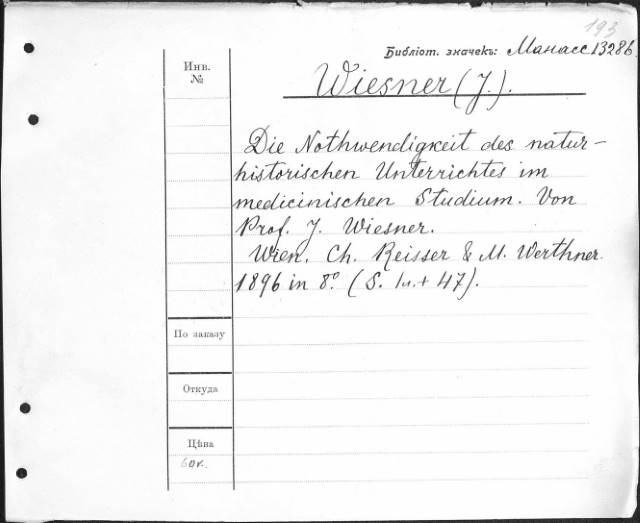 193
Библіот. значекъ: Манасс 13286.
Инв.
№
Wiesner (J.).
Die Nothwendigkeit des natur-
historischen Unterrichtes im
medicinischen Studium. Von
Prof. J. Wiesner.
Wien. Ch. Reisser & M. Werthner.
1896 in 8º. (S. 1н.+ 47).
По заказу
Откуда
Цѣна
60к.